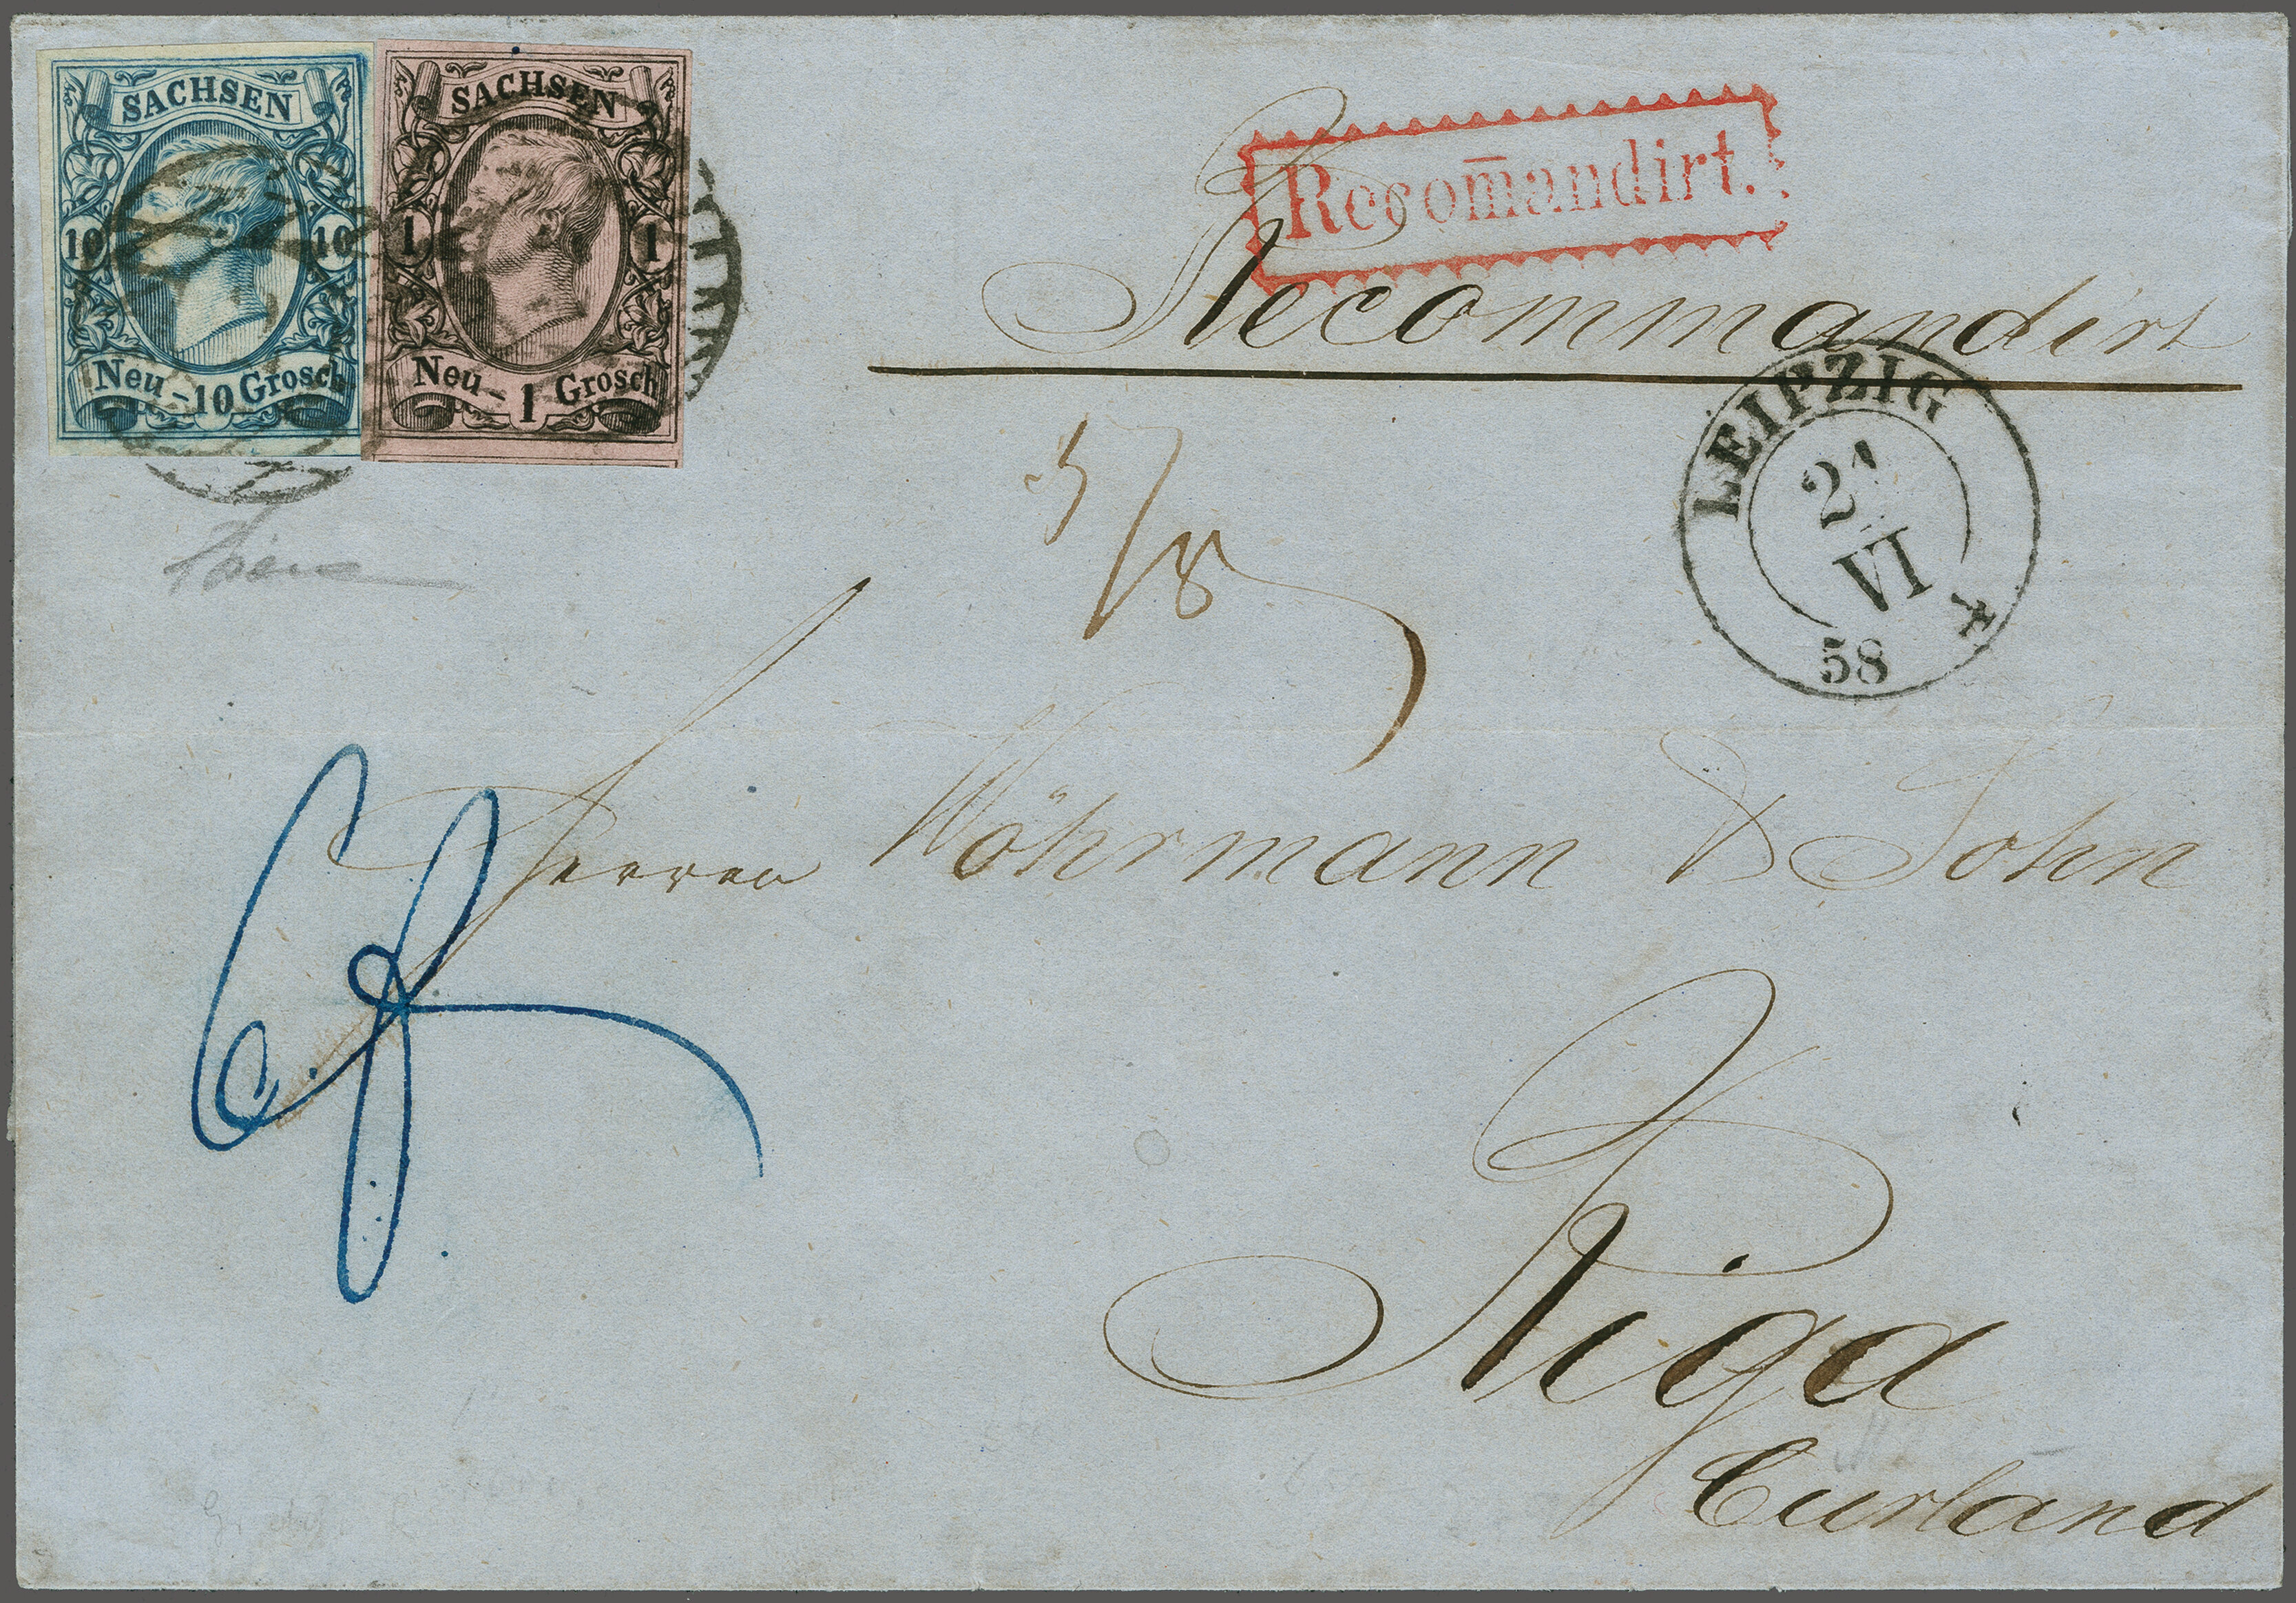 SACHSEN
10 10
Neu-10 Grosch
SACHSEN
1 1
Neu-1 Grosch
Recom̄andirt.
Recommandirt
LEIPZIG
VI
58
Herren Wöhrmann & Sohn
Riga
Curland